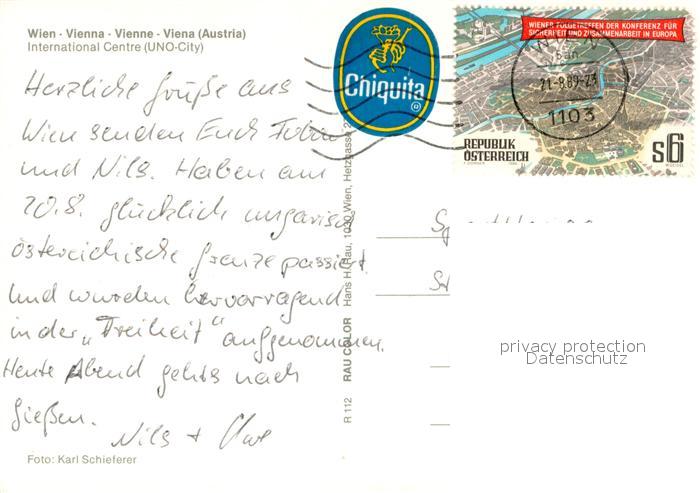 Wien · Vienna · Vienne · Viena (Austria)
International Centre (UNO-City)
Herzliche Grüße aus
Wien senden Euch
und Nils. Haben am
20.8. glücklich ungarisch
österreichische Grenze passiert
und wurden hervorragend
in der „Freiheit“ aufgenommen.
Heute Abend gehts nach
Gießen.
Nils +
Foto: Karl Schieferer
R 112 RAU COLOR Hans H. Rau, 1030 Wien, Hetzgasse 2
Chiquita
WIENER FOLGETREFFEN DER KONFERENZ FÜR
SICHERHEIT UND ZUSAMMENARBEIT IN EUROPA
REPUBLIK
ÖSTERREICH
S6
21-8.89-23
1103
privacy protection
Datenschutz